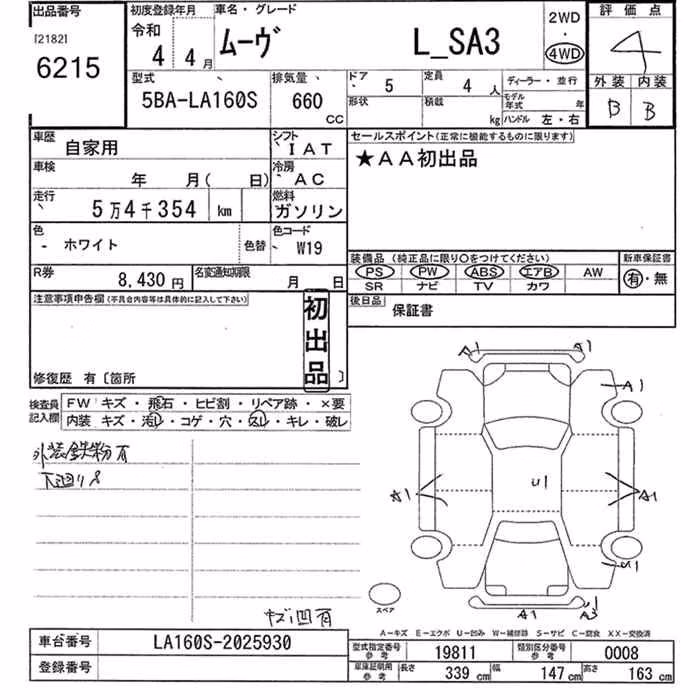 出品番号 初度登録年月 車名・グレード 2WD 評価点
[2182] 令和 ムーヴ L_SA3 4WD 4
6215 4 4月
型式 排気量 ドア 5 定員 4人 ディーラー・並行 外装 内装
5BA-LA160S 660 CC 形状 積載 kg モデル年式 年 B B
ハンドル 左・右
車歴 自家用 シフト IAT セールスポイント(正常に機能するものに限ります)
車検 年 月( 日) 冷房 AC ★AA初出品
走行 5万4千354 km 燃料 ガソリン
色 - ホワイト 色替 色コード W19
装備品(純正品に限り○をつけてください) 新車保証書
R券 8,430円 名変通知期限 月 日 PS PW ABS エアB AW 有・無
SR ナビ TV カワ
注意事項申告欄(不具合内容等は具体的に記入して下さい) 初出品 後日品 保証書
修復歴 有〔箇所 〕
検査員記入欄 FW キズ・飛石・ヒビ割・リペア跡・×要
内装 キズ・汚レ・コゲ・穴・スレ・キレ・破レ
外装鉄粉有
下廻りS
A1
A1
A1
A1
U1
U1
U1
A1
A3
スペア
キズ凹有
A−キズ E−エクボ U−凹み W−補修跡 S−サビ C−腐食 XX−交換済
車台番号 LA160S-2025930 型式指定番号 参考 19811 類別区分番号 参考 0008
登録番号 車庫証明用 参考 長さ 339cm 幅 147cm 高さ 163cm